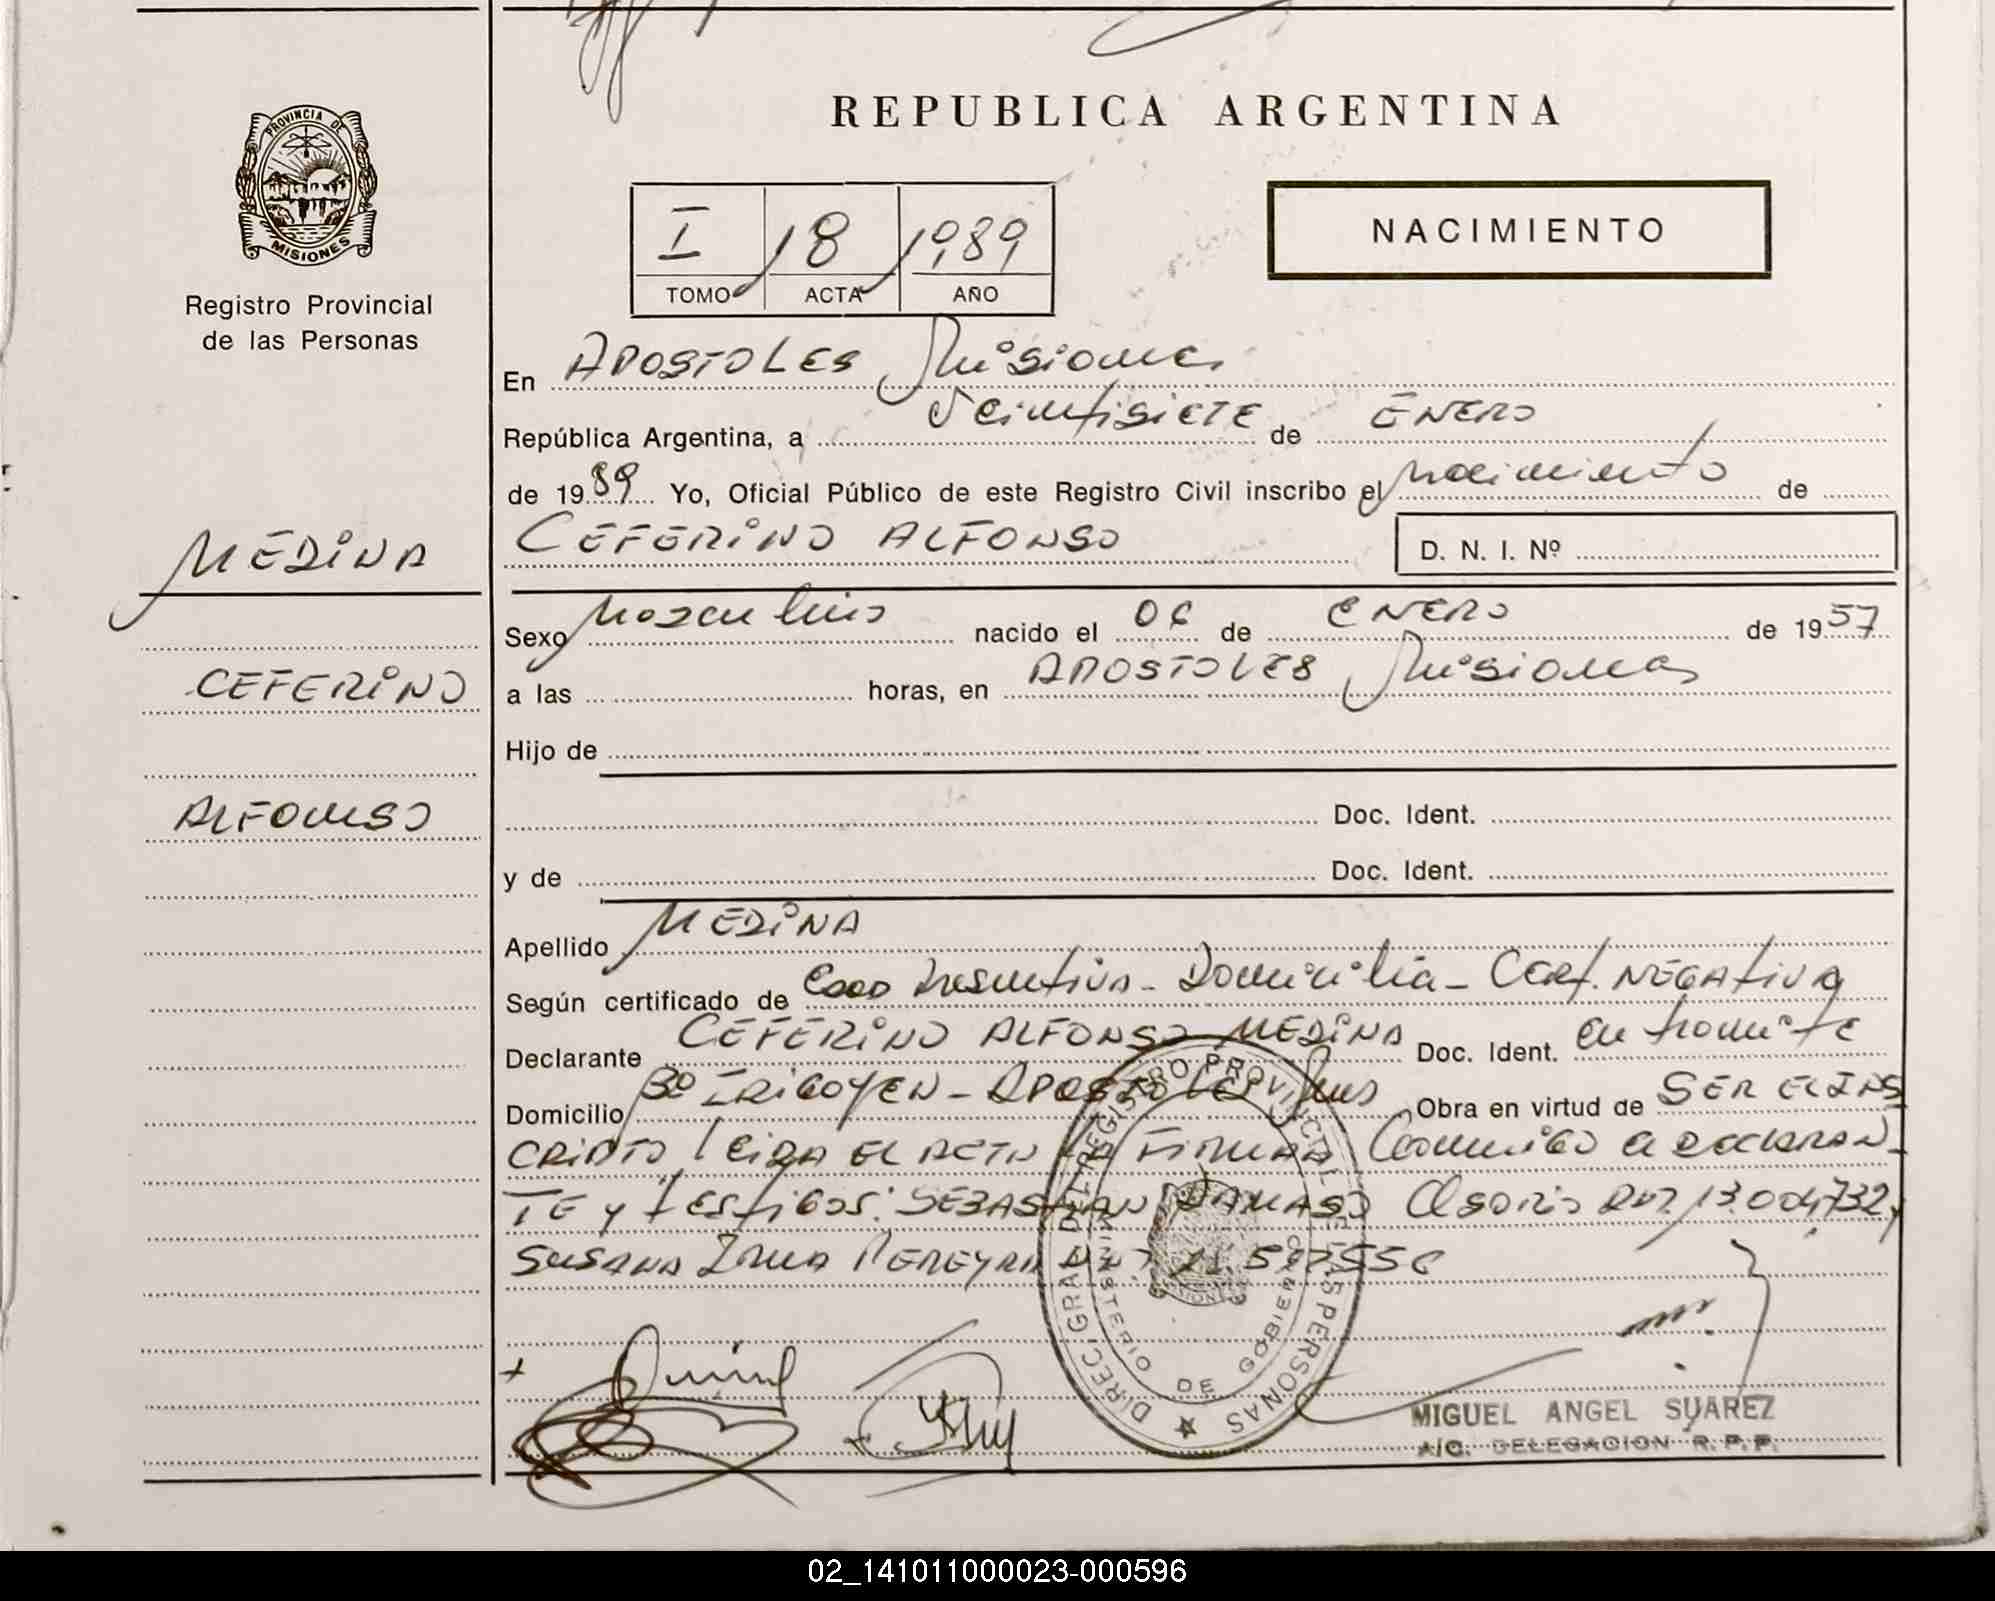 PROVINCIA DE
MISIONES
Registro Provincial
de las Personas
MEDINA
CEFERINO
ALFONSO
REPUBLICA ARGENTINA
I 18 1989
TOMO ACTA AÑO
NACIMIENTO
En APOSTOLES Misiones
República Argentina, a Veintisiete de ENERO
de 1989 Yo, Oficial Público de este Registro Civil inscribo el Nacimiento de
CEFERINO ALFONSO D. N. I. Nº
Sexo Masculino nacido el 06 de ENERO de 1957
a las horas, en APOSTOLES Misiones
Hijo de
Doc. Ident.
y de Doc. Ident.
Apellido MEDINA
Según certificado de Domicilia - Cert. NEGAtiva
Declarante CEFERINO ALFONSO MEDINA Doc. Ident. en tramite
Domicilio Bº IRIGOYEN - APOSTOLES Mnes Obra en virtud de SER EL INS
CRIPTO Leida EL ACTA LA FIRMAN Conmigo el DECLARAN-
TE y tEStigos: SEBASTIAN DAMASO Osorio DNI 13.004,732,
SUSANA Irma PEREYRA DNI 21.597556
DIREC. GRAL. DEL REGISTRO PROVINCIAL DE LAS PERSONAS
MINISTERIO DE GOBIERNO
MISIONES
MIGUEL ANGEL SUAREZ
A/C. DELEGACION R. P. P.
02_141011000023-000596